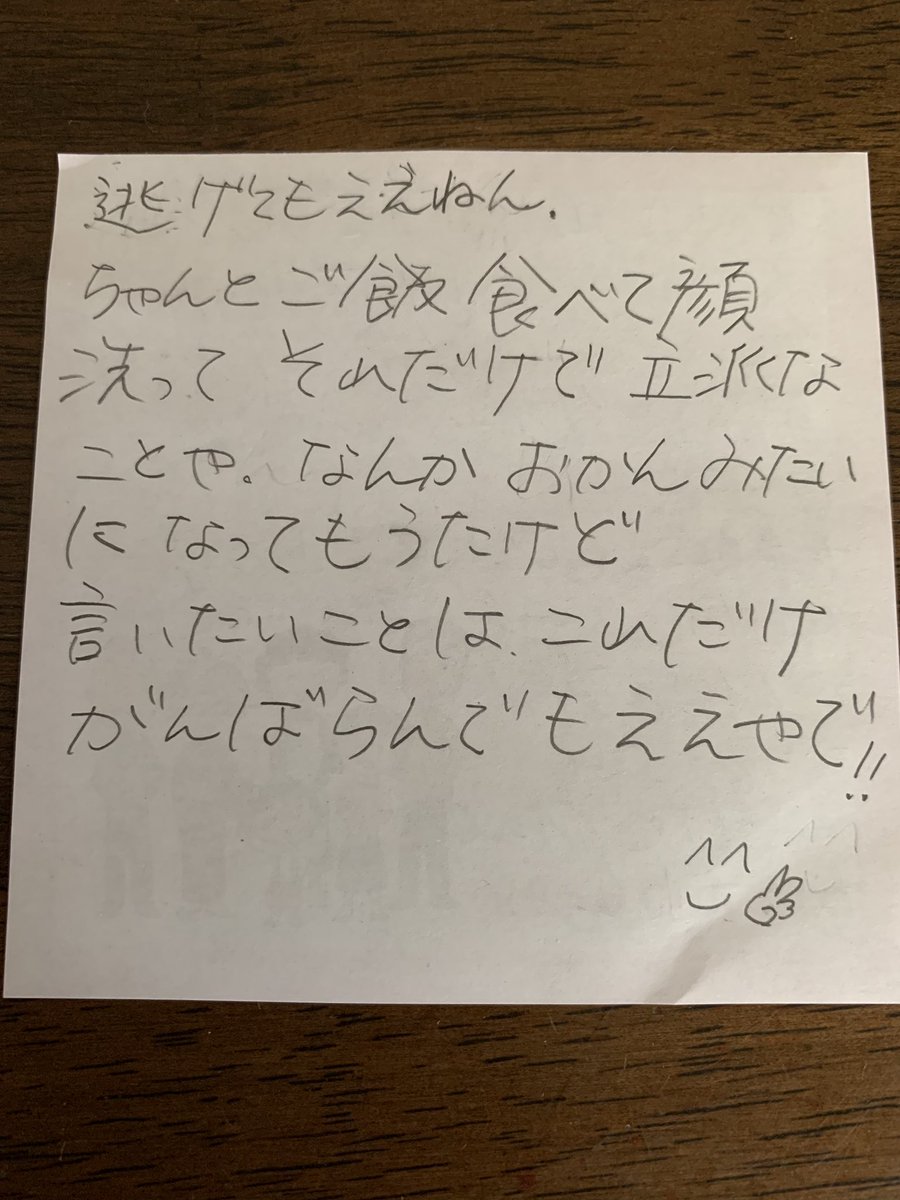 逃げてもええねん.
ちゃんとご飯食べて顔
洗って それだけで 立派な
ことや。なんか おかんみたい
に なってもうたけど
言いたいことは、これだけ
がんばらんでもええやで!!